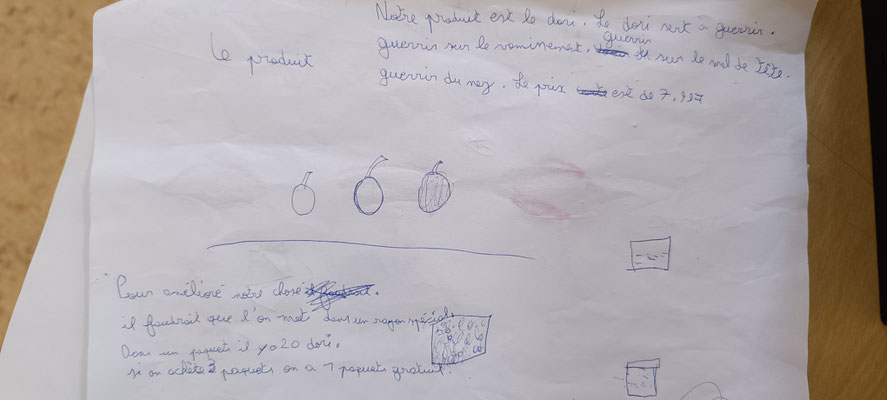 Notre produit est le dori. Le dori sert à guerrir.
guerrir sur le vomissement. guerrir sur le mal de tête.
guerrir du nez. Le prix est de 7,997
Le produit
Pour amélioré notre chose.
il faudrait que l'on met dans un rayon spécial.
Dans un paquets il y a 20 dori.
si on achète 2 paquets on a 1 paquets gratuit.